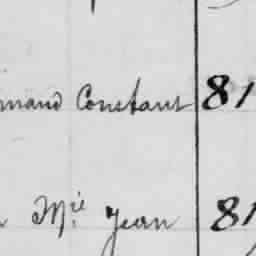 mand Constant 81
Mie Jean 81